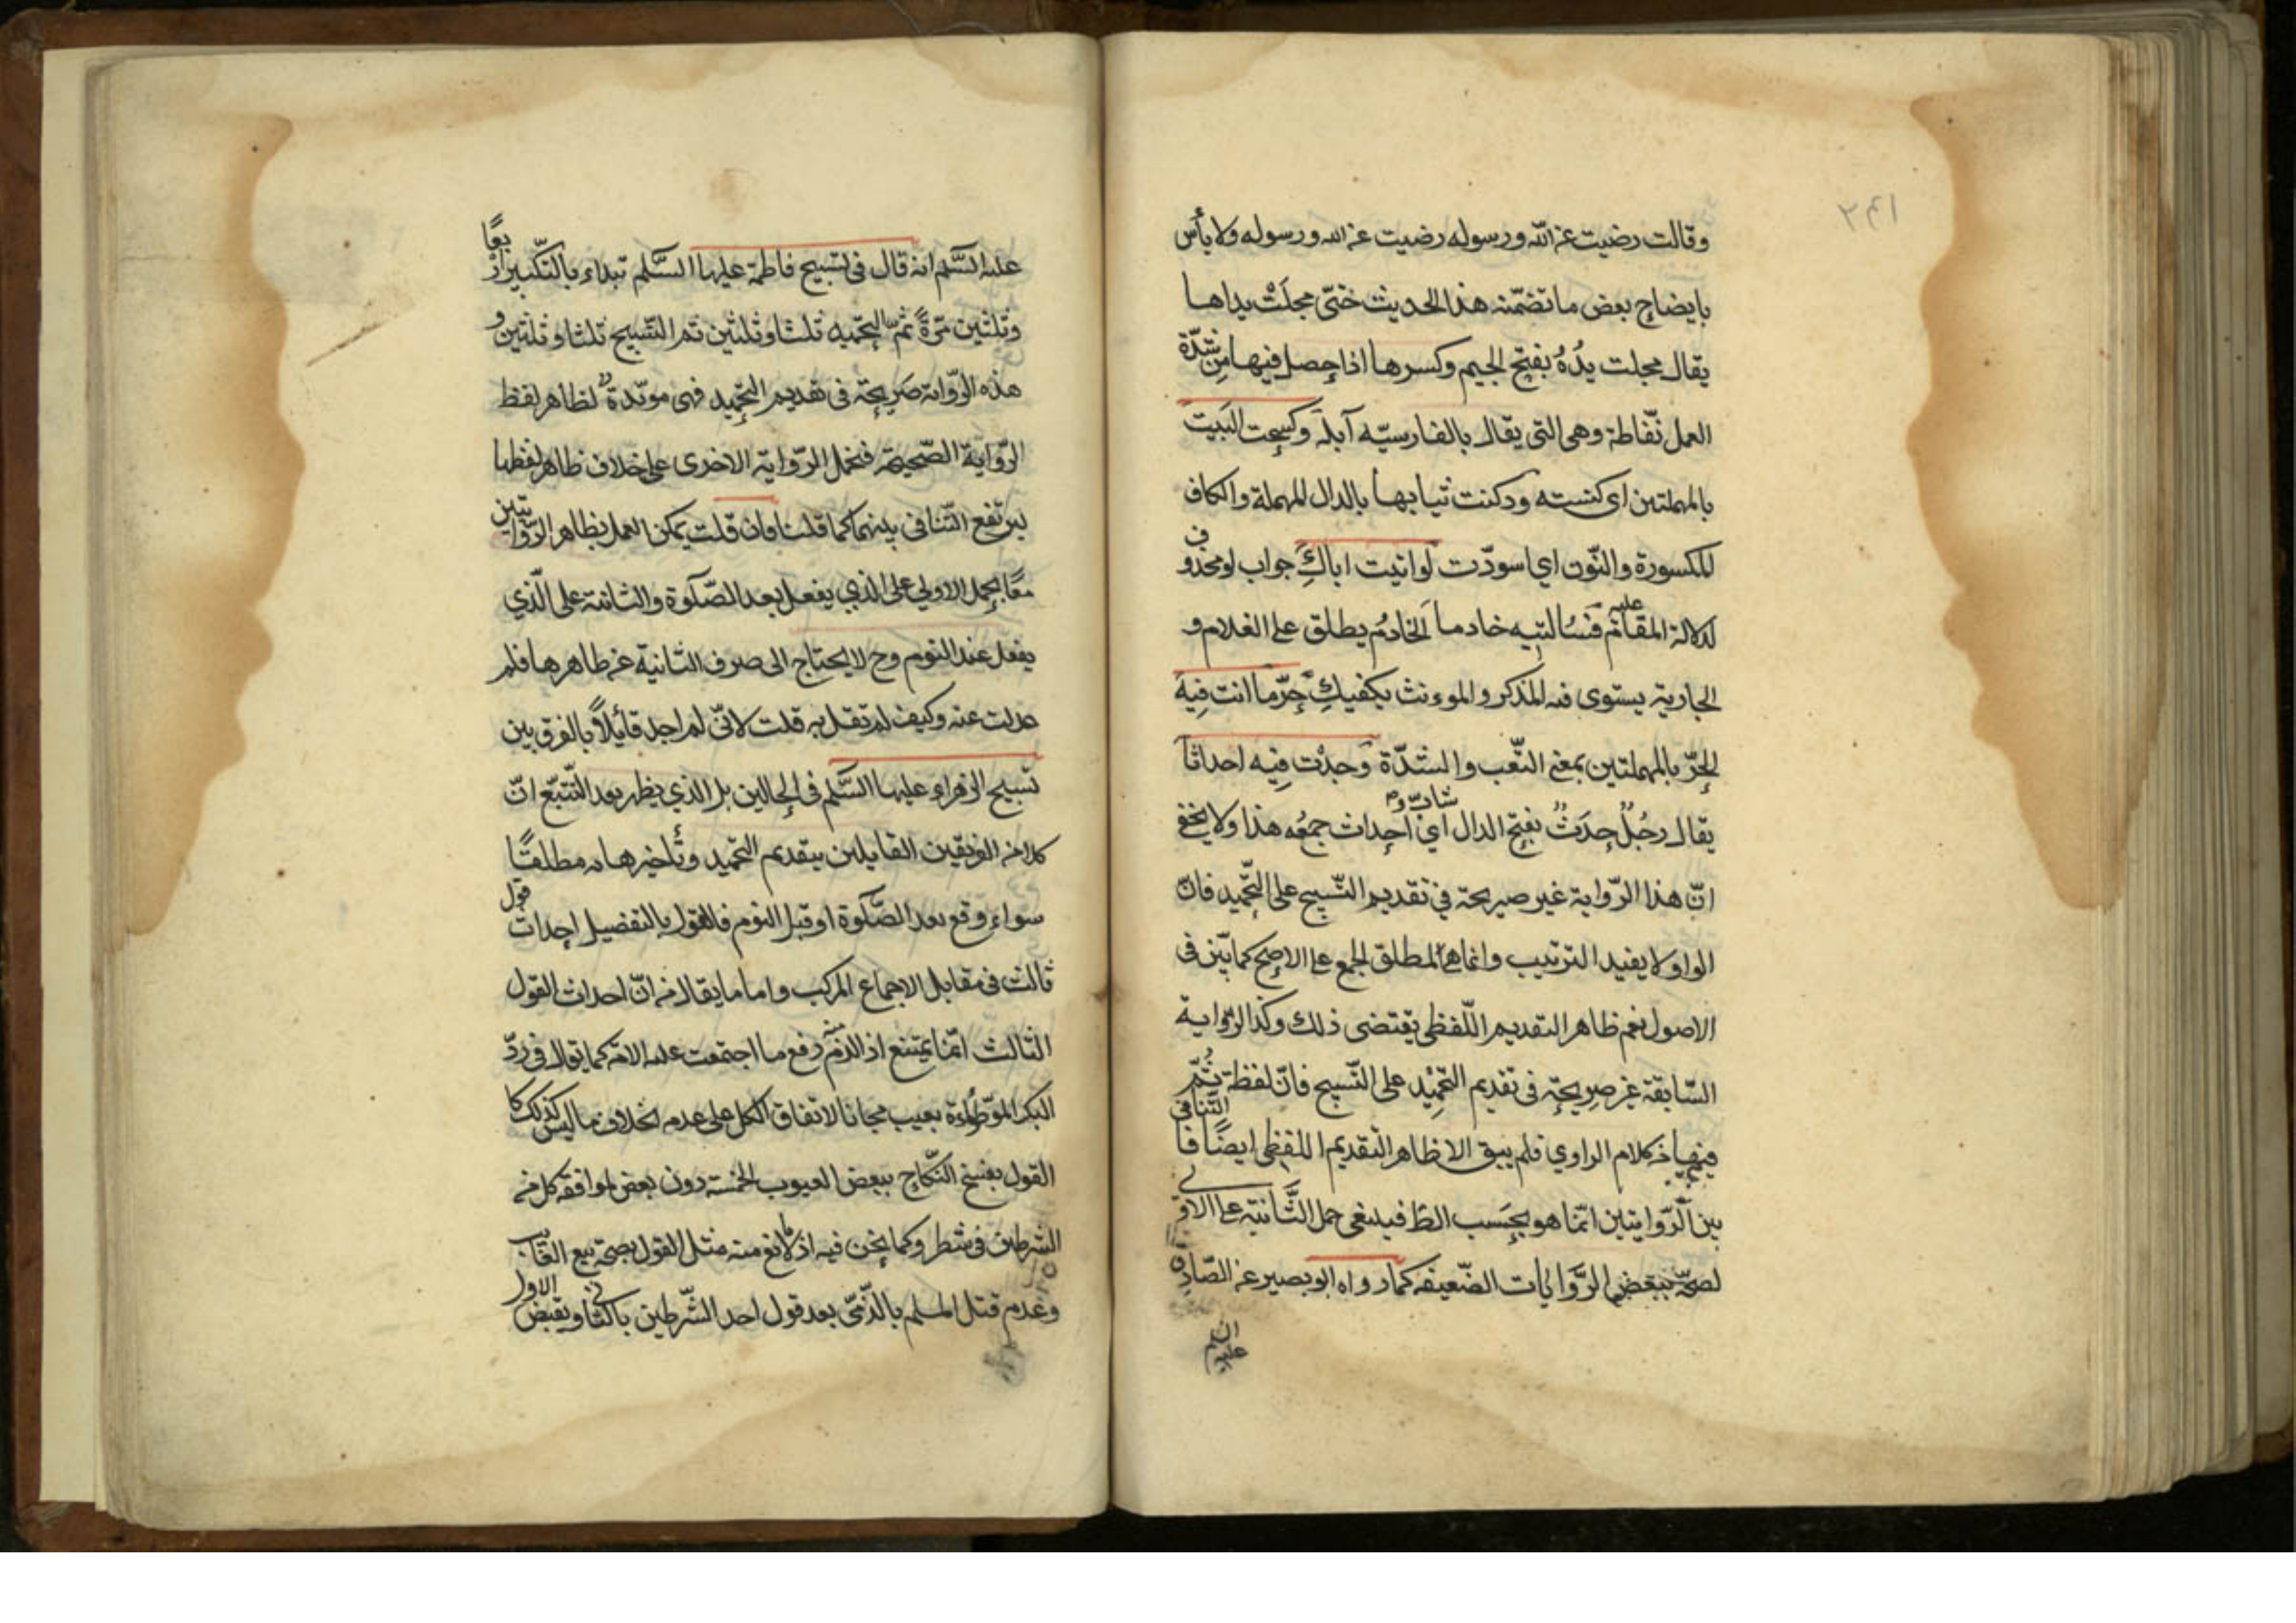 ٢٤١
وقالت رضيت عن الله ورسوله رضيت عن الله ورسوله ولا بأس
بايضاح بعض ما تضمّنه هذا الحديث ختّى مجلَتْ يداها
يقال مجلت يدُهُ بفتح الجيم وكسرها اذا حصل فيها من شدّة
العمل نفّاطة وهى التى يقال بالفارسيّه آبله وكسحت البَيت
بالمهملتين اى كنسته ودكنت ثيابها بالدال المهملة والكاف
المكسورة والنّون اي اسودّت لو اتيت اباكِ جواب لو محذوف
لدلالة المقام عليه خادما الخادمُ يطلق على الغلام و
الجارية يستوى فيه المذكر والموءنث يكفيكِ حرّ ما انت فيه
الحرّ بالمهملتين بمعنى التّعب والشدّة وَجدْت فِيه احداثا
يقال رجُلٌ حدَثٌ بفتح الدال اي شابّ و احداث جمعُه هذا ولا يخفى
انّ هذا الرّواية غير صريحة في تقديم التّسبيح على التّحميد فانّ
الواو لا يفيد الترتيب وانما هى لمطلق الجمع على الاصح كما بيّن فى
الاصول نعم ظاهر التقديم اللّفظى يقتضى ذلك وكذا الرّواية
السّابقة غير صريحة فى تقديم التحمِيْد على التّسبيح فانّ لفظة ثُمّ
فيها من كلام الراوي فلم يبق الا ظاهر التقديم اللفظى ايضًا فالتّنافى
بين الرّوايتين انّما هو بحَسب الظ فينبغى حمل الثّانية على الاولى
لصحّة ببعض الرّوايات الضّعيفه كما رواه ابو بصير عن الصّادق
عليه السّلم انه قال فى تسبيح فاطمة عليها السَّلم تبداء بالتّكبير اربعًا
وثلثين مرّةً ثمّ التحميد ثلثا وثلثين ثم التّسبيح ثلثا وثلثين و
هذه الرّواية صَريحة فى تقديم التّحميد فهى مويّدة لظاهر لفظ
الرّواية الصّحيحة فنحمل الرّواية الاخرى على خلاف ظاهر لفظها
ليرتفع التّنافى بينهما كما قلنا فان قلت يمكن العمل بظاهر الرّوايتين
معًا بحمل الاولي على الذي يفعل بعد الصّلوة والثانية على الّذي
يفعل عند النوم وح لا يحتاج الى صرف الثانية عن ظاهرها فلم
عدلت عنه وكيف لم تقل به قلت لانّى لم اجد قائلًا بالفرق بين
تسبيح الزهراء عليها السَّلم فى الحالين بل الذي يظهر بعد التّتبّع انّ
كلا من الفريقين القايلين بتقديم التحميد وتأخيره مطلقًا
سواء وقع بعد الصَّلوة او قبل النوم فالقول بالتفضيل احداث قول
ثالث فى مقابل الاجماع المركب واما ما يقال من انّ احداث القول
الثالث انّما يمتنع اذا لزم منه رفع ما اجتمعت عليه الامّة كما يقال فى ردّ
البكر الموطُوءة بعيب مجانا لاتفاق الكل على عدمه بخلاف ما ليس كذلك كا
القول بفسخ النّكاح ببعض العيوب الخمسة دون بعض لموافقة كل من
الشرطين فى شطر وكما نحن فيه اذ لا مانع منه مثل القول بصحة بيع الغائب
وعدم قتل المسلم بالذّمّى بعد قول احد الشّرطين بالثّانى ونقيض الاول